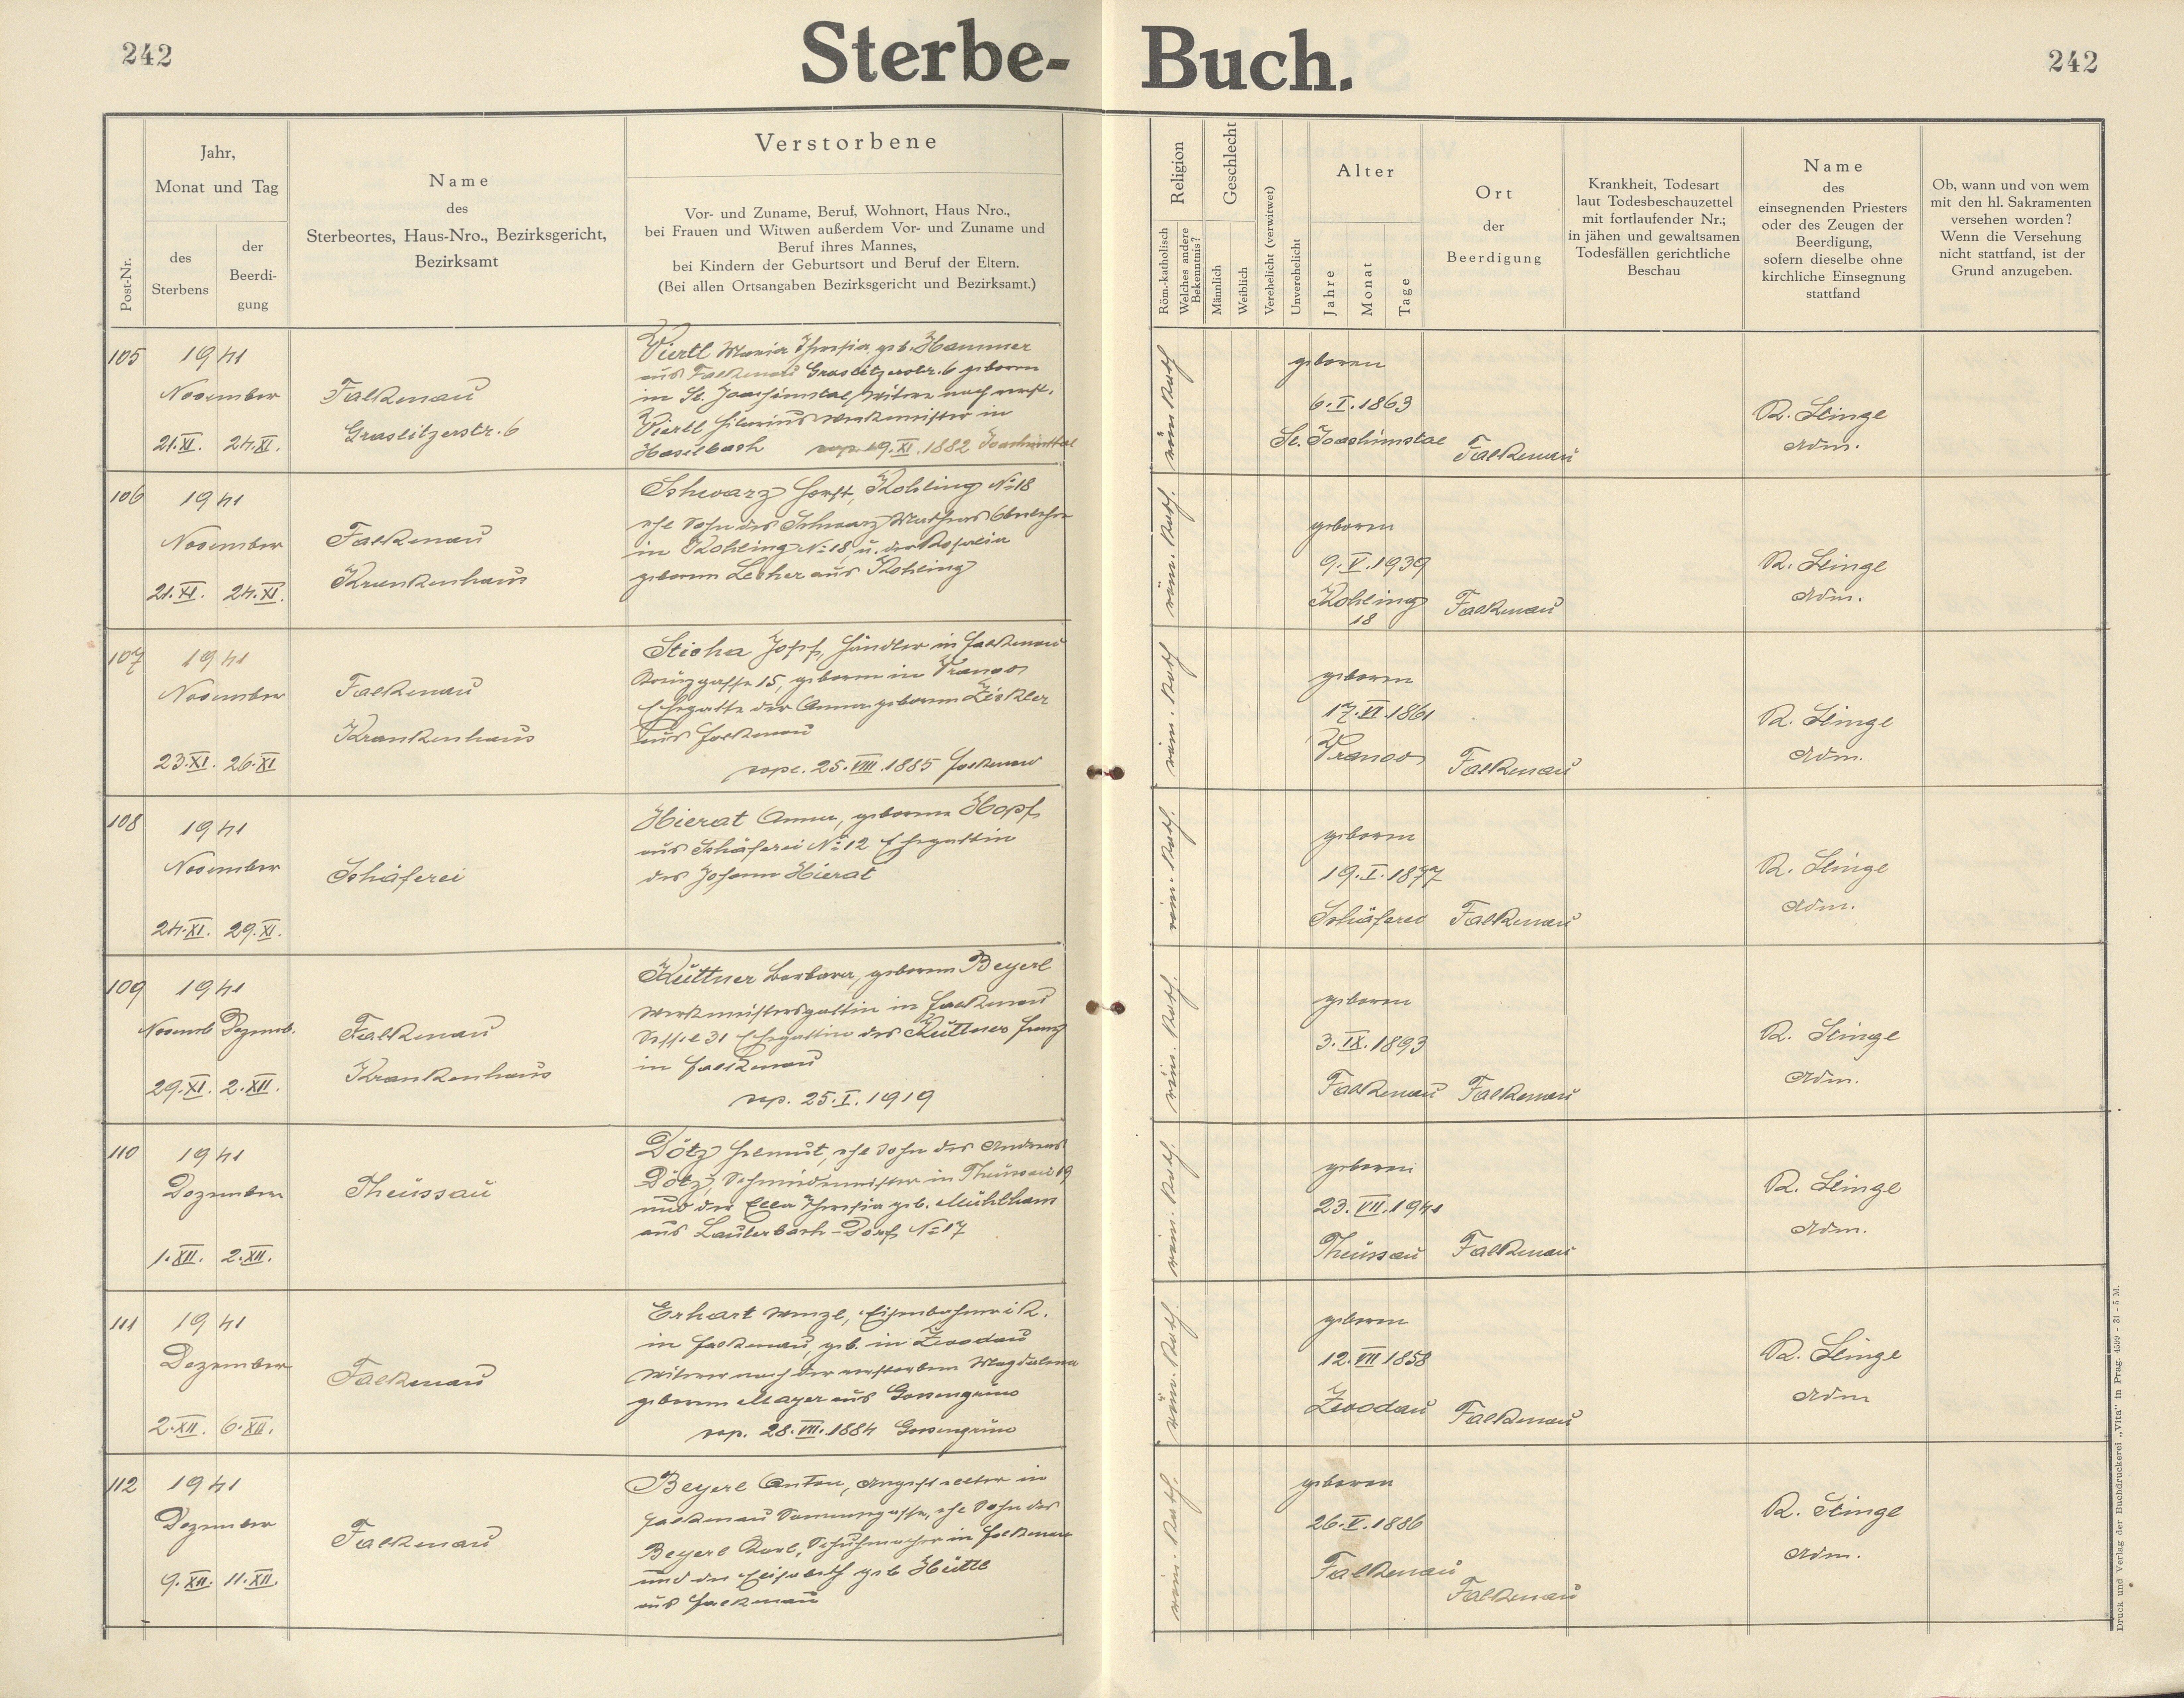 242
Sterbe-Buch.
242
Post-Nr.
Jahr,
Monat und Tag
des
Sterbens
der
Beerdi-
gung
Name
des
Sterbeortes, Haus-Nro., Bezirksgericht,
Bezirksamt
Verstorbene
Vor- und Zuname, Beruf, Wohnort, Haus Nro.,
bei Frauen und Witwen außerdem Vor- und Zuname und
Beruf ihres Mannes,
bei Kindern der Geburtsort und Beruf der Eltern.
(Bei allen Ortsangaben Bezirksgericht und Bezirksamt.)
Religion
Röm.-katholisch
Welches andere
Bekenntnis?
Geschlecht
Männlich
Weiblich
Verehelicht (verwitwet)
Unverehelicht
Alter
Jahre
Monat
Tage
Ort
der
Beerdigung
Krankheit, Todesart
laut Todesbeschauzettel
mit fortlaufender Nr.;
in jähen und gewaltsamen
Todesfällen gerichtliche
Beschau
Name
des
einsegnenden Priesters
oder des Zeugen der
Beerdigung,
sofern dieselbe ohne
kirchliche Einsegnung
stattfand
Ob, wann und von wem
mit den hl. Sakramenten
versehen worden?
Wenn die Versehung
nicht stattfand, ist der
Grund anzugeben.
105
1941
November
21.XI. 24.XI.
Falkenau
Graslitzerstr. 6
Viertl Maria Theresia geb. Hammer
aus Falkenau Graslitzerstr. 6 geboren
in St. Joachimstal, Witwe nach verst.
Viertl Hilarius Werkmeister in
Haselbach cop. 19.XI.1882 Joachimsthal
röm. kath.
geboren
6.I.1863
St. Joachimstal
Falkenau
R. Stinge
Adm.
106
1941
November
21.XI. 24.XI.
Falkenau
Krankenhaus
Schwarz Horst, Kohling No 18
ehl Sohn des Schwarz Mathias
in Kohling No 18 u. der Rosalia
geborene Lecher aus Kohling
röm. kath.
geboren
9.V.1939
Kohling
18
Falkenau
R. Stinge
Adm.
107
1941
November
23.XI. 26.XI
Falkenau
Krankenhaus
Sticha Josef, Händler in Falkenau
Kreuzgasse 15, geboren in Vranov
Ehegatte der Anna geborene Zickler
aus Falkenau
cop. 25.VIII.1885 Falkenau
röm. kath.
geboren
17.VI.1861
Vranov
Falkenau
R. Stinge
Adm.
108
1941
November
24.XI. 29.XI.
Schäferei
Hierat Anna, geborene Hopf
aus Schäferei No 12 Ehegattin
des Johann Hierat
röm. kath.
geboren
19.I.1877
Schäferei
Falkenau
R. Stinge
Adm.
109
1941
Novemb Dezemb.
29.XI. 2.XII.
Falkenau
Krankenhaus
Küttner Barbara, geborene Beyerl
Werkmeistersgattin in Falkenau
31 Ehegattin des Küttner Franz
in Falkenau
cop. 25.I.1919
röm. kath.
geboren
3.IX.1893
Falkenau
Falkenau
R. Stinge
Adm.
110
1941
Dezember
1.XII. 2.XII.
Theussau
Dötz Helmut, ehl Sohn des Andreas
Dötz, Schmiedemeister in Theussau 19
und der Ella Theresia geb. Mühlham
aus Lauterbach-Dorf No 17
röm. kath.
geboren
23.VII.1941
Theussau
Falkenau
R. Stinge
Adm.
111
1941
Dezember
2.XII. 6.XII.
Falkenau
Erhart Wenzl, Eisenbahner i R.
in Falkenau, geb. in Zwodau
Witwer nach der verstorbenen Magdalena
geborene Mayer aus Gossengrün
cop. 28.VII.1884 Gossengrün
röm. kath.
geboren
12.VII 1858
Zwodau
Falkenau
R. Stinge
Adm
112
1941
Dezember
9.XII. 11.XII.
Falkenau
Beyerl Anton, Angestellter in
Falkenau Sonnengasse, ehl Sohn des
Beyerl Karl, Schuhmacher in Falkenau
und der Elisabeth geb Hüttl
aus Falkenau
röm. kath.
geboren
26.V.1886
Falkenau
Falkenau
R. Stinge
Adm.
Druck und Verlag der Buchdruckerei „Vita" in Prag. 4599 - 31 - 5 M.